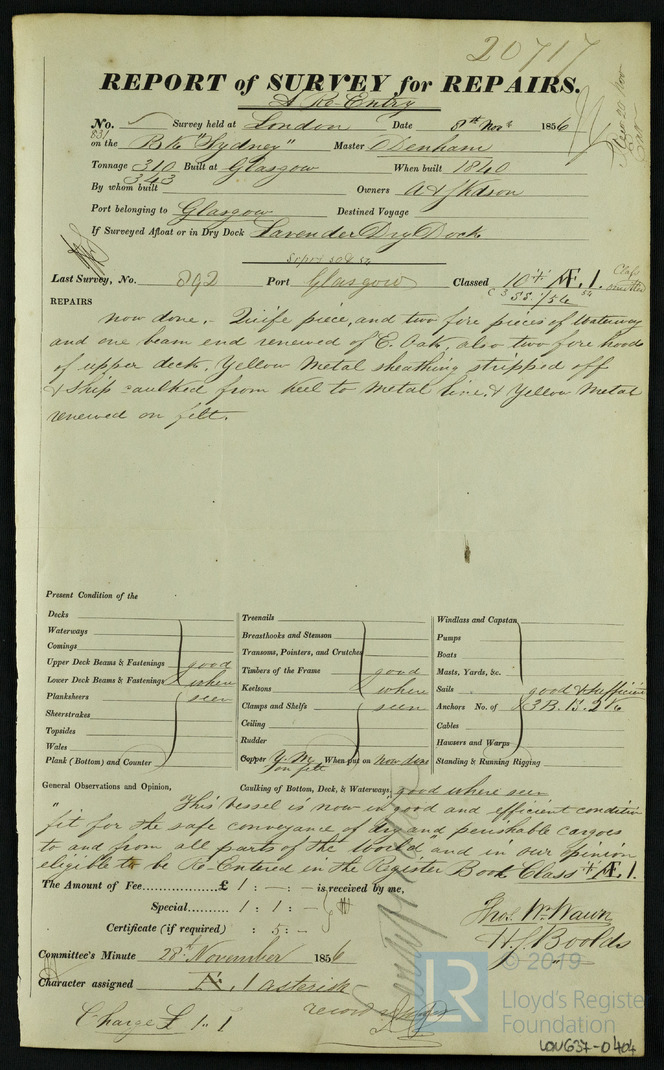 20717
REPORT of SURVEY for REPAIRS.
A Re-Entry
No. Survey held at London Date 8th Novr 1856
831
on the Bk "Sydney" Master Denham
Tonnage 310 Built at Glasgow When built 1840
343
By whom built Owners
Port belonging to Glasgow Destined Voyage
If Surveyed Afloat or in Dry Dock Lavender Dry Dock
Last Survey, No. 892 Port Glasgow Classed 10 Æ. 1.
REPAIRS
now done. - Knife piece, and two fore pieces of Waterway
and one beam end renewed of E. Oak, also two fore hoods
of upper deck. Yellow Metal sheathing stripped off
& Ship caulked from keel to Metal line. & Yellow Metal
renewed on felt.
Present Condition of the
Decks
Waterways
Comings
Upper Deck Beams & Fastenings good
Lower Deck Beams & Fastenings where
Planksheers seen
Sheerstrakes
Topsides
Wales
Plank (Bottom) and Counter
Treenails
Breasthooks and Stemson
Transoms, Pointers, and Crutches
Timbers of the Frame good
Keelsons where
Clamps and Shelfs seen
Ceiling
Rudder
Copper Y. M. on felt When put on now done
Windlass and Capstan
Pumps
Boats
Masts, Yards, &c.
Sails good & sufficient
Anchors No. of 3 B. 1 S. 2 K
Cables
Hawsers and Warps
Standing & Running Rigging
General Observations and Opinion, Caulking of Bottom, Deck, & Waterways, good where seen
This vessel is now in good and efficient condition
fit for the safe conveyance of dry and perishable cargoes
to and from all parts of the World and in our opinion
eligible to be Re-Entered in the Register Book Class Æ. 1.
The Amount of Fee £ 1 : - : - is received by me,
Special 1 : 1 : -
Certificate (if required) : 5 : -
Thos. Wm. Wawn
H. J. Boolds
Committee's Minute 28th November 1856
Character assigned Æ. 1 asterisk
Charge £ 1.. 1
© 2019
LR
Lloyd's Register
Foundation
LON637-0404